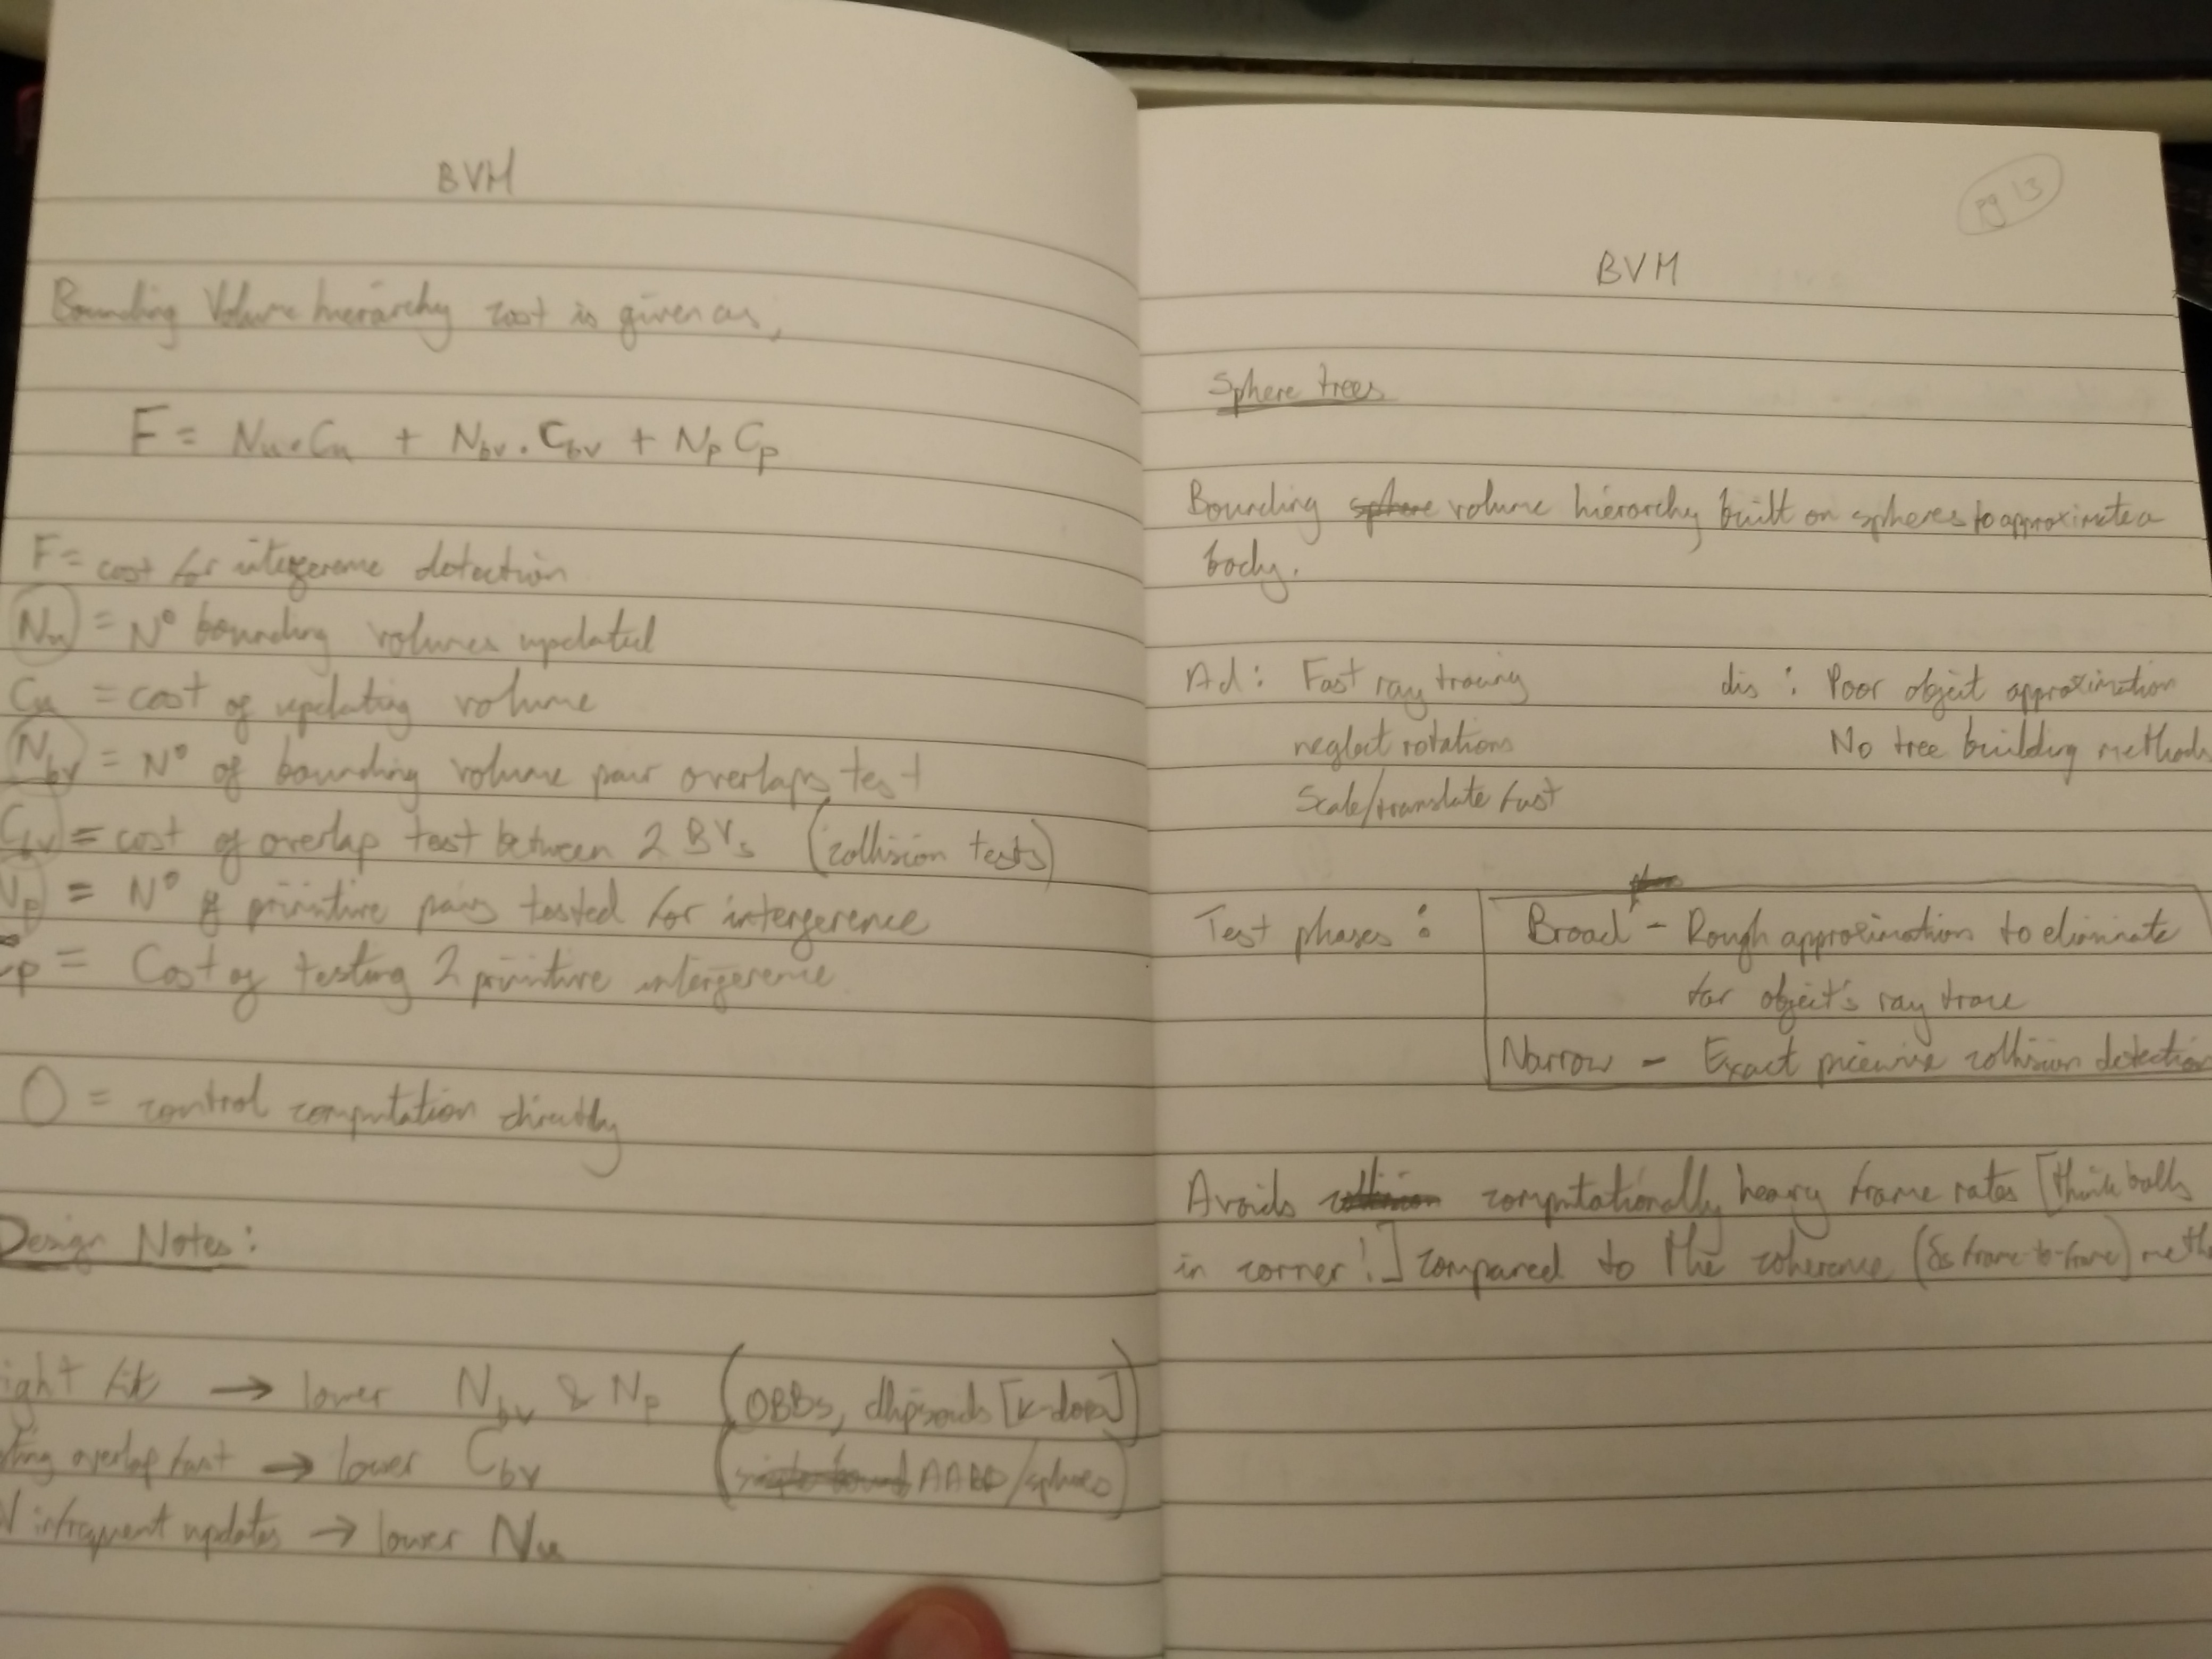 BVH
Bounding Volume hierarchy cost is given as,
F = Nu.Cu + Nbv.Cbv + Np Cp
F = cost for intergerence detection
Nu = Nº bounding volumes updated
Cu = cost of updating volume
Nbv = Nº of bounding volume pair overlaps test
Cbv = cost of overlap test between 2 BVs (collision tests)
Np = Nº of primitive pairs tested for intergerence
Cp = Cost of testing 2 primitive intergerence
O = control computation directly
Design Notes:
ight fit → lower Nbv & Np (OBBs, ellipsoids [k-dops])
ting overlap fast → lower Cbv (AABB/spheres)
infrequent updates → lower Nu
pg 13
BVH
Sphere trees
Bounding sphere volume hierarchy built on spheres to approximate a
body.
Ad: Fast ray tracing dis: Poor object approximation
neglect rotations No tree building methods
Scale/translate fast
Test phases: Broad - Rough approximation to eliminate
far object's ray trace
Narrow - Exact piecewise collision detection
Avoids collision computationally heavy frame rates [think balls
in corner!] compared to the coherence (δs frame-to-frame) meth